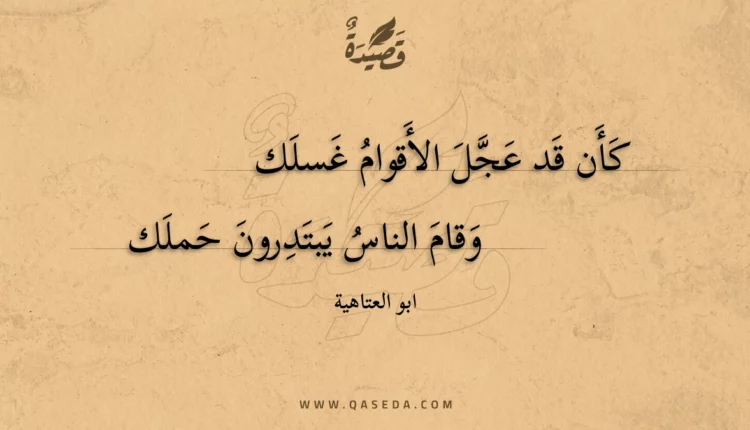 قَصِيدَةٌ
كَأَن قَد عَجَّلَ الأَقوامُ غَسلَك
وَقامَ الناسُ يَبتَدِرونَ حَملَك
ابو العتاهية
WWW.QASEDA.COM